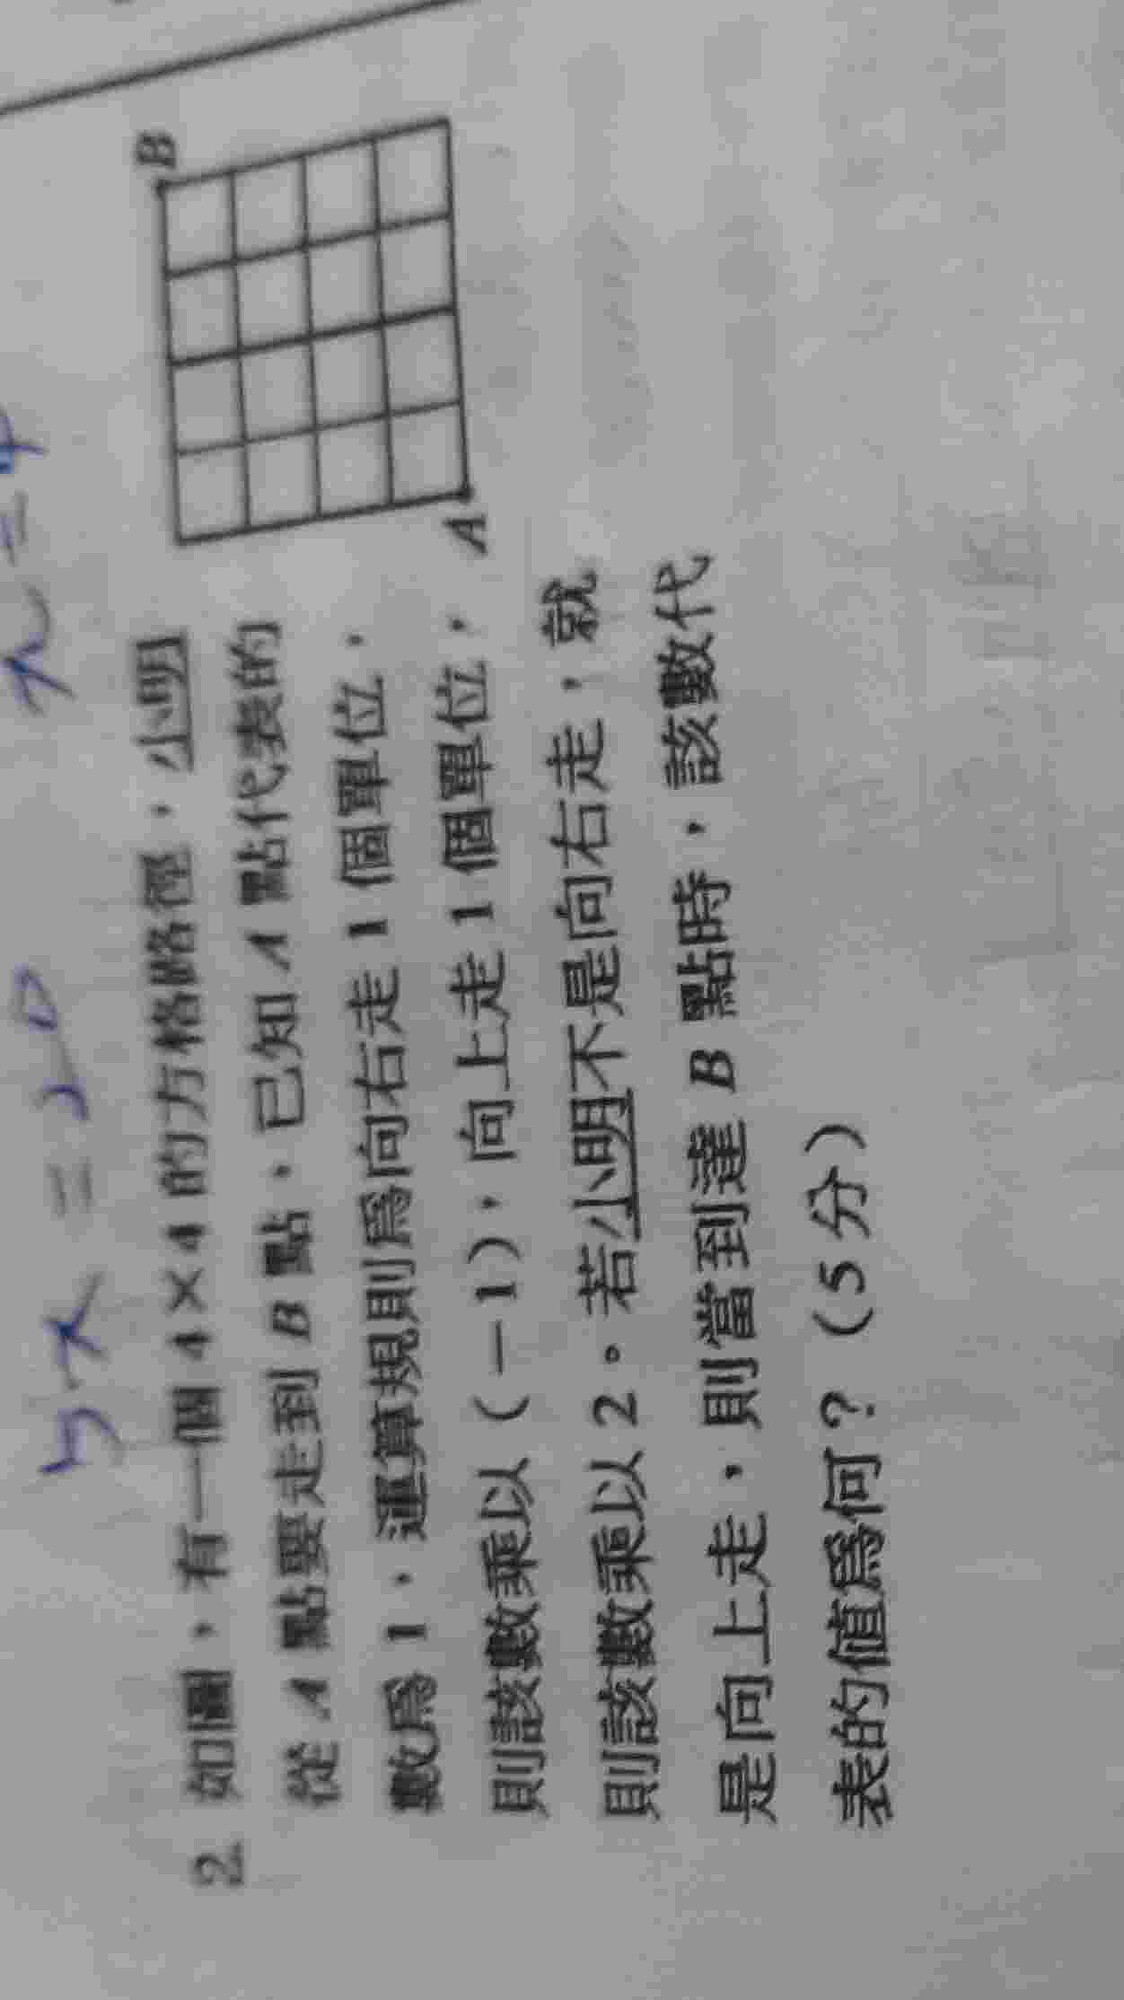 5x=20
x=4
2. 如圖，有一個 4×4 的方格路徑，小明
從 A 點要走到 B 點，已知 A 點代表的
數為 1，運算規則為向右走 1 個單位，
則該數乘以（－1），向上走 1 個單位，
則該數乘以 2。若小明不是向右走，就
是向上走，則當到達 B 點時，該數代
表的值為何？（5 分）
A
B